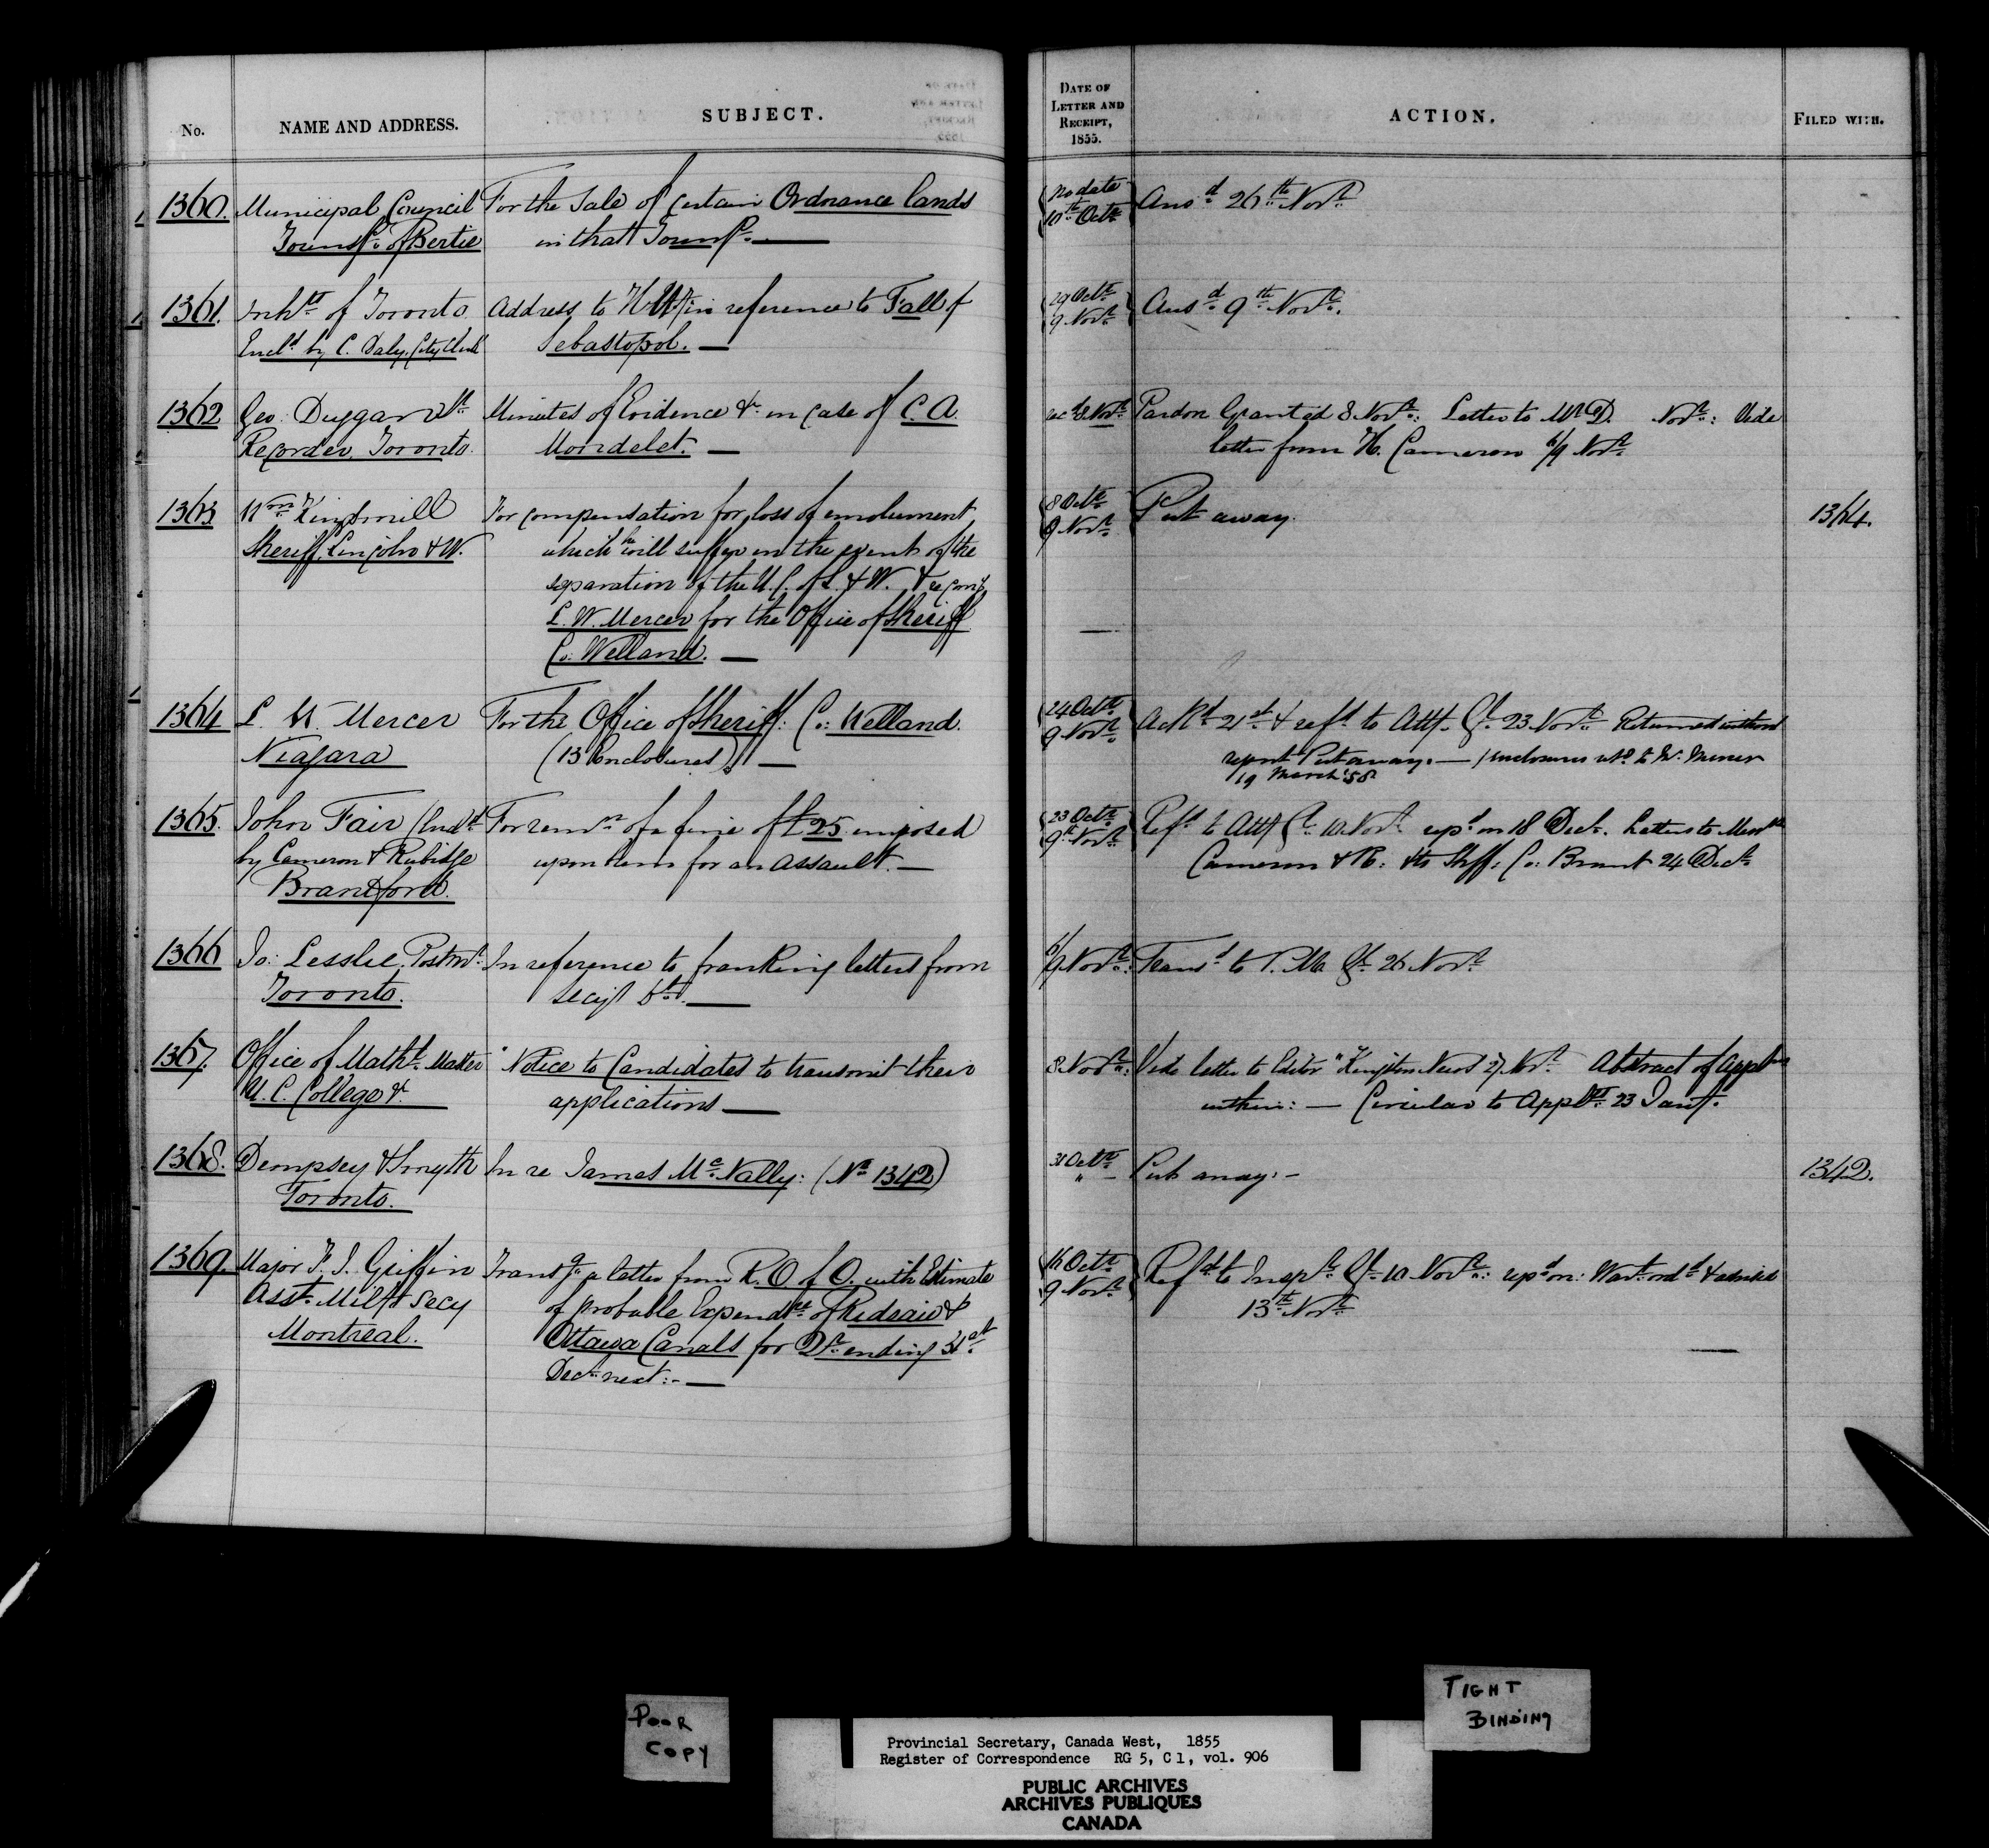 No.
NAME AND ADDRESS.
SUBJECT.
DATE OF
LETTER AND
RECEIPT,
1855.
ACTION.
FILED WITH.
1360. Municipal Council For the Sale of certain Ordnance lands
Townsp. of Bertie in that Townsp. —
No date
10th Octr. Ansd. 26th Novr.
1361. Inhts. of Toronto Address to in reference to Fall of
Encld. by C. Daly, City Clerk Sebastopol. —
29 Octr.
9 Novr. Ansd. 9th Novr.
1362 Geo: Duggan Minutes of Evidence &c. in case of C. A.
Recorder, Toronto. Mondelet. —
Novr. Pardon Granted 8 Novr.: Letter to Mr D. Novr.: Vide
letter from H. Cameron 6/9 Novr.
1363 Wm. Kingsmill For compensation for loss of emolument
Sheriff, Lincoln & W. which he will suffer in the event of the
separation of the U. C. of L. & W. &
L. W. Mercer for the Office of Sheriff
Co: Welland. —
8 Octr.
9 Novr. Put away. 1364.
1364 L. W Mercer For the Office of Sheriff: Co: Welland.
Niagara (13 Enclosures). —
24 Octr.
9 Novr. Ackd. 21st. & refd. to Atty. Gl. 23 Novr. Returned without
report Put away. — / enclosures to W. Mercer
19 March '58
1365. John Fair (Encd. For remn. of a fine of £25. imposed
by Cameron & Rubidge upon him for an assault. —
Brantford.
23 Octr.
9th. Novr. Refd. to Atty Gl. 10 Novr. repd. on 18 Decr. Letters to Messrs
Cameron & R: & to Shff: Co: Brant 24 Decr.
1366 Ja: Lesslie, Postmr. In reference to franking letters from
Toronto. Secy's Dt. —
6/9 Novr.: Transd. to P. M. Gl. 26 Novr.
1367. Office of Matht. Master "Notice to Candidates to transmit their
U. C. College &c. applications —
8 Novr.: Vide letter to Editor "Kingston News 27 Novr. Abstract of Applns
within: — Circular to Applts. 23 Jany.
1368. Dempsey & Smyth In re James McNally: (No. 1342)
Toronto.
31 Octr.
" — Put away. — 1342.
1369. Major F. J. Griffin Transg. a letter from R. O. of O. with Estimate
Asst. Milty Secy of probable Expendre. of Rideau &
Montreal. Ottawa Canals for Qr. ending 31st.
Decr. next: —
16 Octr.
9 Novr. Refd. to Inspr. Gl. 10 Novr.: repd. on: Wart. ordd. & advised
13th Novr.
POOR
COPY
TIGHT
BINDING
Provincial Secretary, Canada West, 1855
Register of Correspondence RG 5, C 1, vol. 906
PUBLIC ARCHIVES
ARCHIVES PUBLIQUES
CANADA